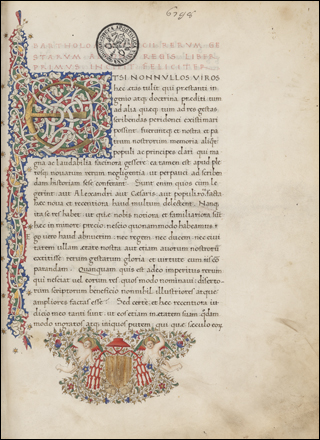 BARTHOLOM FACII RERUM GE
STARUM REGIS LIBER
PRIMUS INCIPIT FELICITER
ETSI NONNULLOS VIROS
hec etas tulit qui prestanti in
genio atq; doctrina prediti tum
ad alia queq; tum ad res gestas
scribendas peridonei existimari
possint: fueruntq; et nostra et pa
trum nostrorum memoria aliqt
populi ac principes clari qui ma
gna ac laudabilia facinora gessere: ea tamen est apud ple
rosq; nouarum rerum negligentia, ut perpauci ad scriben
dam historiam sese conferant. Sunt enim quos cum le
gerint aut Alexandri aut Cesaris aut populi ro. facta
hec noua et recentiora haud multum delectent. Nanq;
ita se res habet ut que nobis notiora et familiariora sint
hec in minore precio nescio quonam modo habeamus.
ego uero haud abnuerim nec regem nec ducem nec ciui
tatem ullam etate nostra aut etiam auorum nostrorum
extitisse: rerum gestarum gloria et uirtute cum
parandam. Quanquam quis est adeo imperitus rerum
qui nesciat uel eorum res quos modo nominaui diserto
rum scriptorum beneficio nonnihil illustriores atque
ampliores factas esse? Sed certe et hec recentiora iu
dicio meo tanti sunt ut eos etiam metatem suam quodam
modo ingratos atq; iniquos putem qui que seculo eor